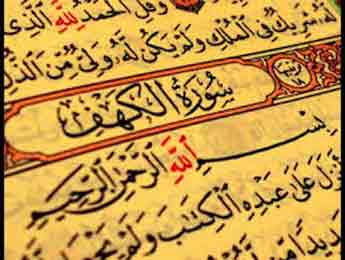 وَقُلِ الْحَمْدُ لِلَّهِ الَّذِى
لَّهُ شَرِيكٌ فِى الْمُلْكِ وَلَمْ يَكُن لَّهُ وَلِىٌّ مِّنَ الذُّلِّ
سُورَةُ الْكَهْفِ
بِسْمِ اللَّهِ الرَّحْمَٰنِ الرَّحِيمِ
عَلَىٰ عَبْدِهِ الْكِتَٰبَ وَلَمْ